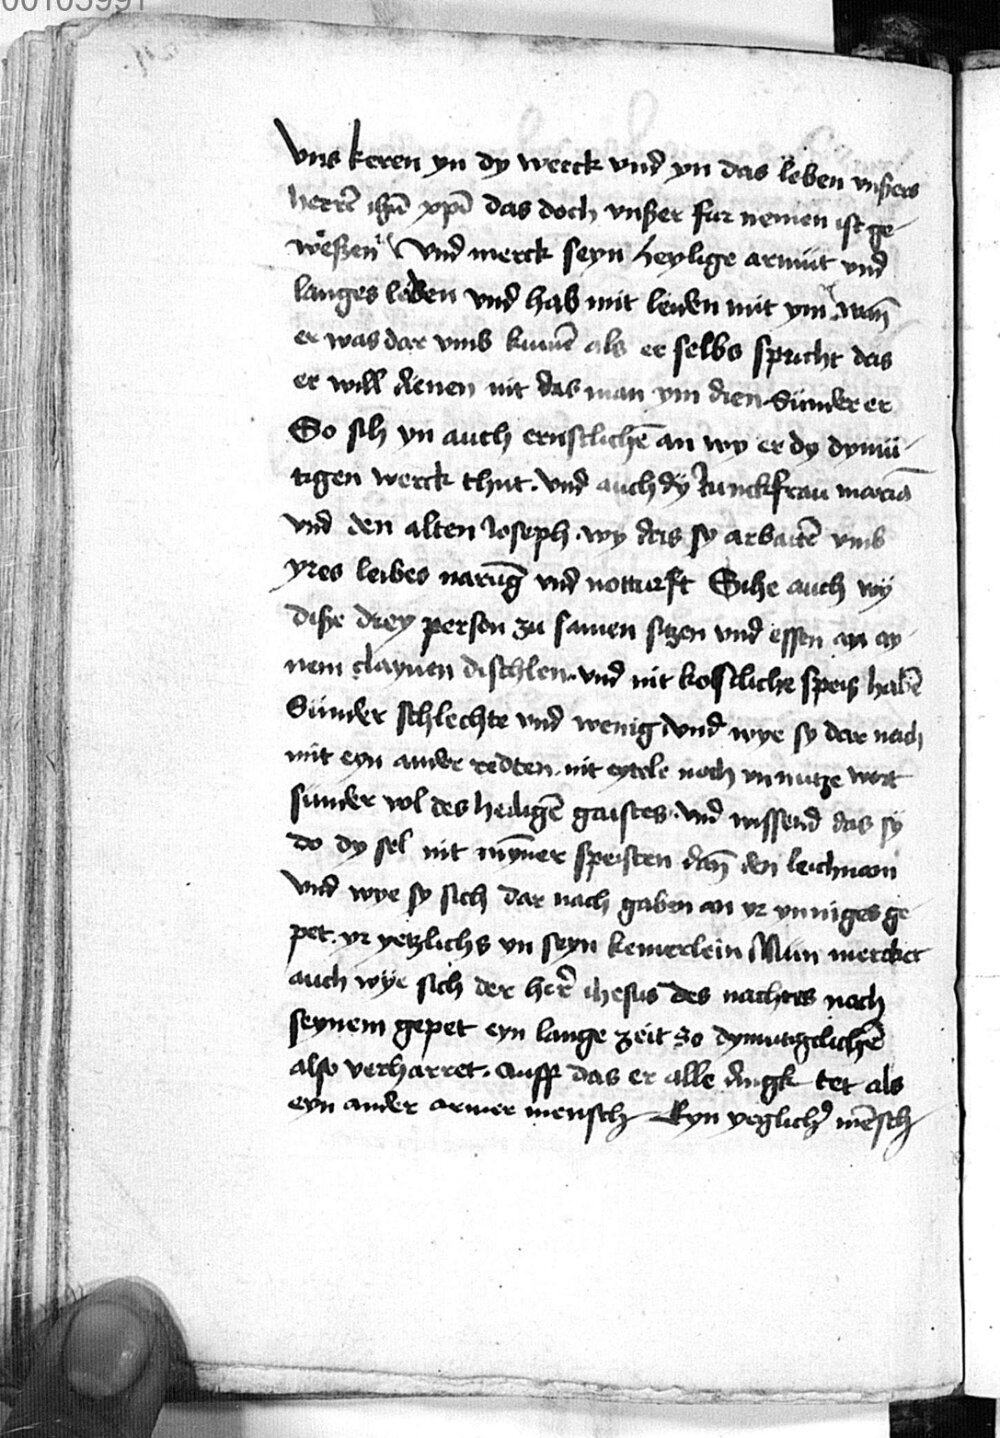 00103991
vns keren yn dy werck vnd yn das leben vnßers
herrē ihū xpī das doch vnßer fur nemen ist ge-
weßen Vnd merck seyn heylige armüt vnd
langes leben vnd hab mit leiden mit ym wañ
er was dar vmb kumē als er selbs spricht das
er will dienen nit das man ym dien Sünder er
So sih yn auch ernstlichē an wy er dy dymü-
tigen werck thut. vnd auch dÿ Junckfrau maria
vnd den alten Joseph. wy das sy arbaitē vmb
yres leibes narūg vnd notturft Sihe auch wÿ
diße drey person zu samen sitzen vnd essen an ay-
nem claynen dischlen. vnd nit kostliche speiß habē
Sünder schlechte vnd wenig vnd wye sy dar nach
mit eyn ander redten. nit eytele noch vnnutze wort
sunder vol des heiligē gaistes. vnd wissend das sÿ
do dy sel nit mȳner speisten dañ den leichnam
vnd wye sy sich dar nach gaben an yr ynniges ge-
pet. yr yetzlichs yn seyn kemerlein Nun mercket
auch wÿe sich der her̄ ihesus des nachtes nach
seynem gepet eyn lange zeit so dymutigclichē
also verharret. Auff das er alle dingk tet als
eyn ander armer mensch Eyn yeglicher mēsch